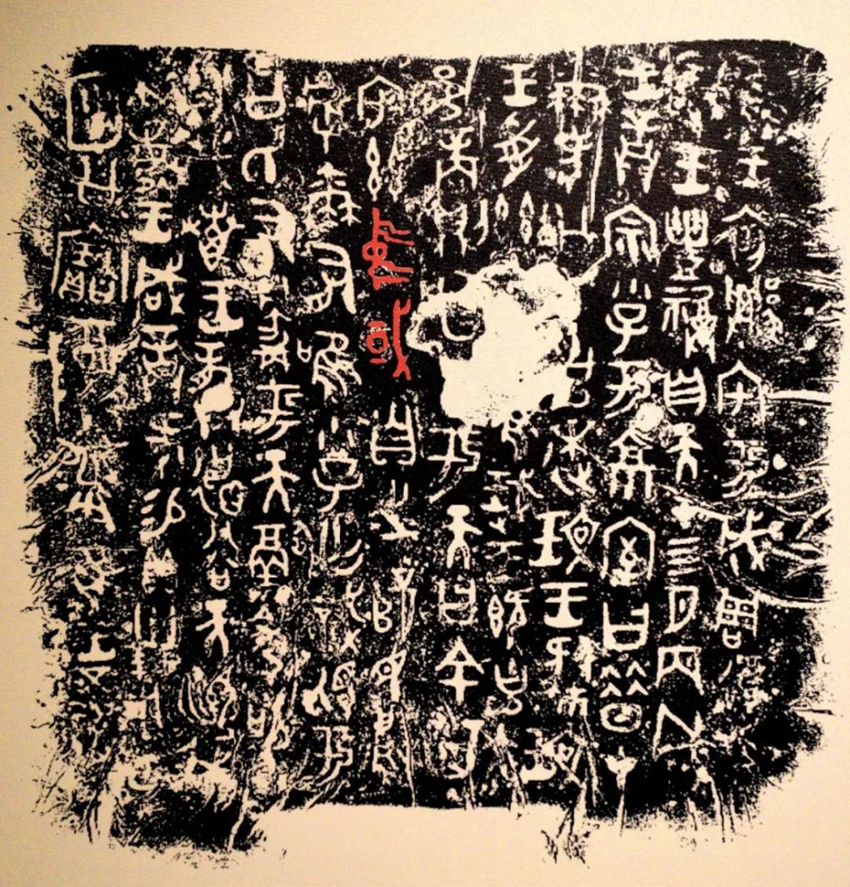 唯王初𨟻宅于成周復稟
珷王豐福自天在四月丙戌
王誥宗小子于京室曰昔在
爾考公氏克逨玟王肆玟
王受茲大命唯珷王既克大
邑商則廷告于天曰余其
宅茲中或自之乂民烏
乎爾有唯小子亡識視于
公氏有爵于天徹命敬
享哉唯王恭德裕天訓我
不敏王咸誥何賜貝卅朋用作
庾公寶尊彝唯王五祀